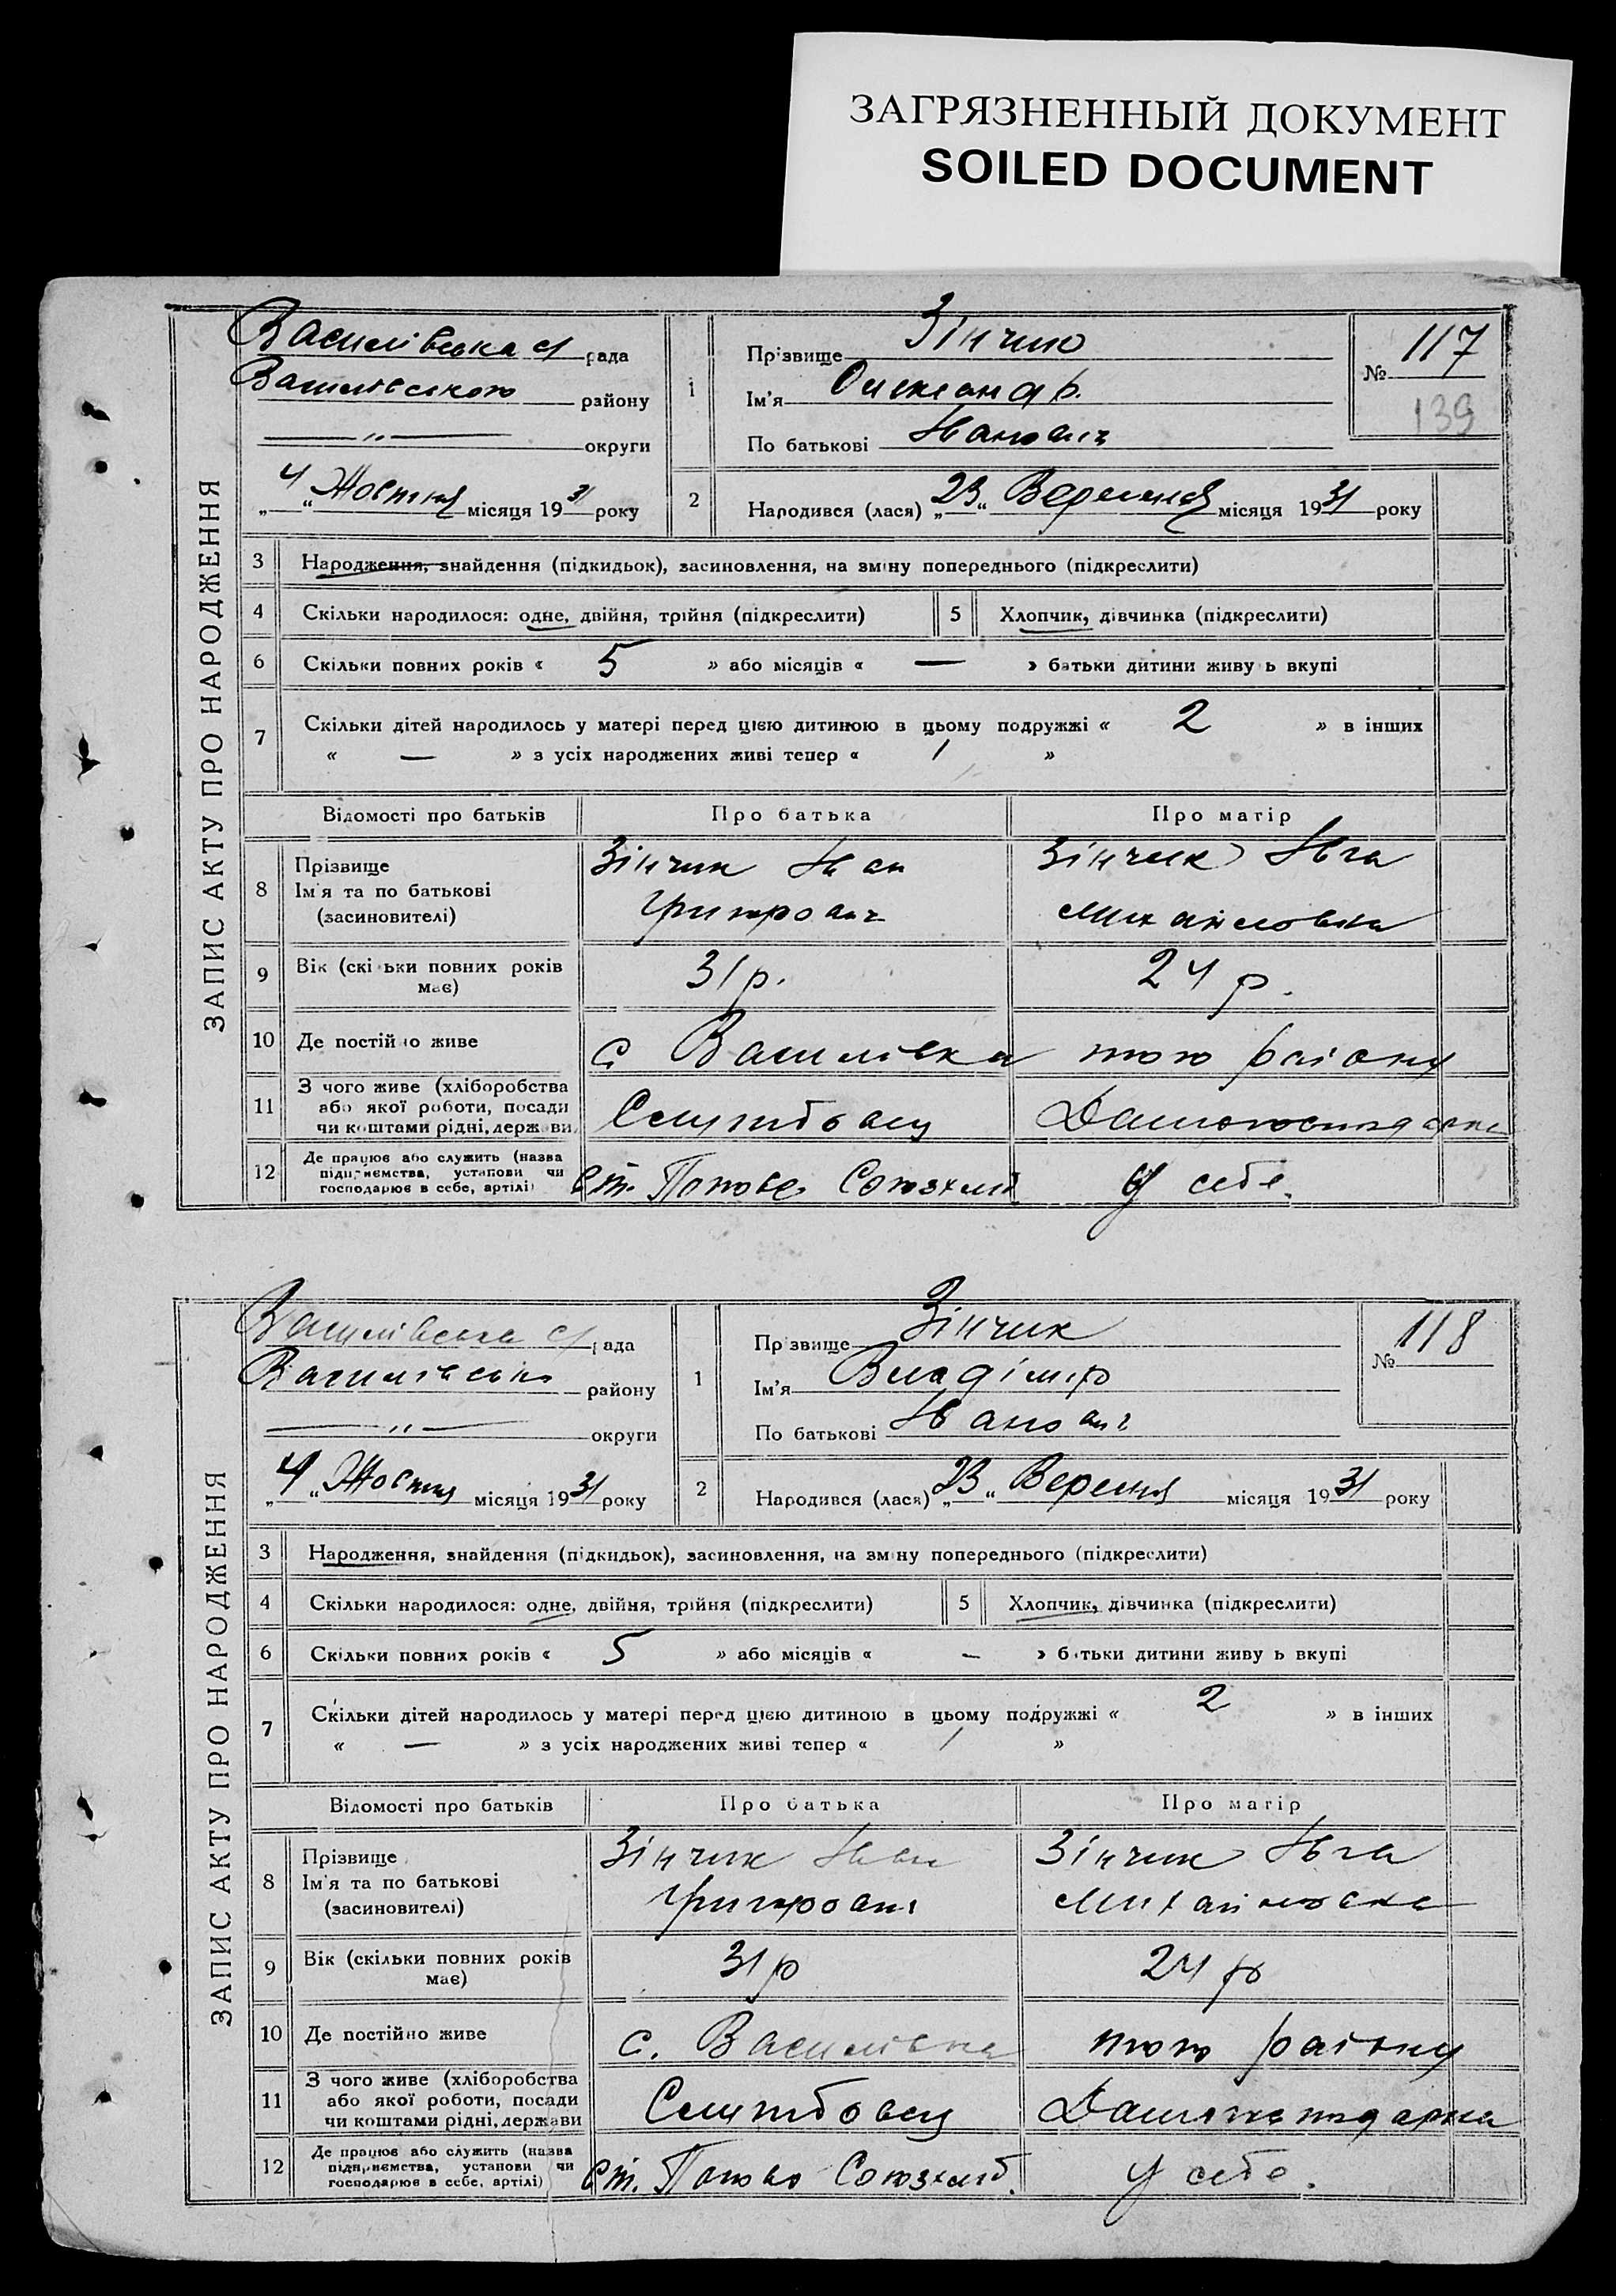 ЗАГРЯЗНЕННЫЙ ДОКУМЕНТ
SOILED DOCUMENT
ЗАПИС АКТУ ПРО НАРОДЖЕННЯ
Василівська с/рада
Василівського району
—〃— округи
„4“ Жовтня місяця 1931 року
1
Прізвище Зінчик
Ім'я Олександр.
По батькові Іванович
№ 117
139
2 Народився (лася) „23“ Вересня місяця 1931 року
3 Народження, знайдення (підкидьок), засиновлення, на зміну попереднього (підкреслити)
4 Скільки народилося: одне, двійня, трійня (підкреслити) 5 Хлопчик, дівчинка (підкреслити)
6 Скільки повних років « 5 » або місяців « — » батьки дитини живу ь вкупі
7 Скільки дітей народилось у матері перед цією дитиною в цьому подружжі « 2 » в інших
« — » з усіх народжених живі тепер « 1 »
Відомості про батьків Про батька Про матір
8 Прізвище Ім'я та по батькові (засновителі) Зінчик Іван Зінчик Івга
Григорович Михайловна
9 Вік (скі ьки повних років має) 31 р. 24 р.
10 Де постійно живе с Василівка того району
11 З чого живе (хліборобства або якої роботи, посади чи коштами рідні, держави Службовец Дамогосподарка
12 Де працює або служить (назва підприємства, установи чи господарює в себе, артілі) ст. Попово Союзхліб У себе.
ЗАПИС АКТУ ПРО НАРОДЖЕННЯ
Василівська с/рада
Василівсько району
—〃— округи
„4“ Жовтня місяця 1931 року
1
Прізвище Зінчик
Ім'я Владімір
По батькові Іванович
№ 118
2 Народився (лася) „23“ Вересня місяця 1931 року
3 Народження, знайдення (підкидьок), засиновлення, на зміну попереднього (підкреслити)
4 Скільки народилося: одне, двійня, трійня (підкреслити) 5 Хлопчик, дівчинка (підкреслити)
6 Скільки повних років « 5 » або місяців « — » батьки дитини живу ь вкупі
7 Скільки дітей народилось у матері перед цією дитиною в цьому подружжі « 2 » в інших
« — » з усіх народжених живі тепер « 1 »
Відомості про батьків Про батька Про матір
8 Прізвище Ім'я та по батькові (засиновителі) Зінчик Іван Зінчик Івга
Григорович Михайловна
9 Вік (скільки повних років має) 31 р 24 р
10 Де постійно живе с. Василівка того району
11 З чого живе (хліборобства або якої роботи, посади чи коштами рідні, держави Службовец Дамогосподарка
12 Де працює або служить (назва підприємства, установи чи господарює в себе, артілі) ст. Попово Союзхліб. У себе.